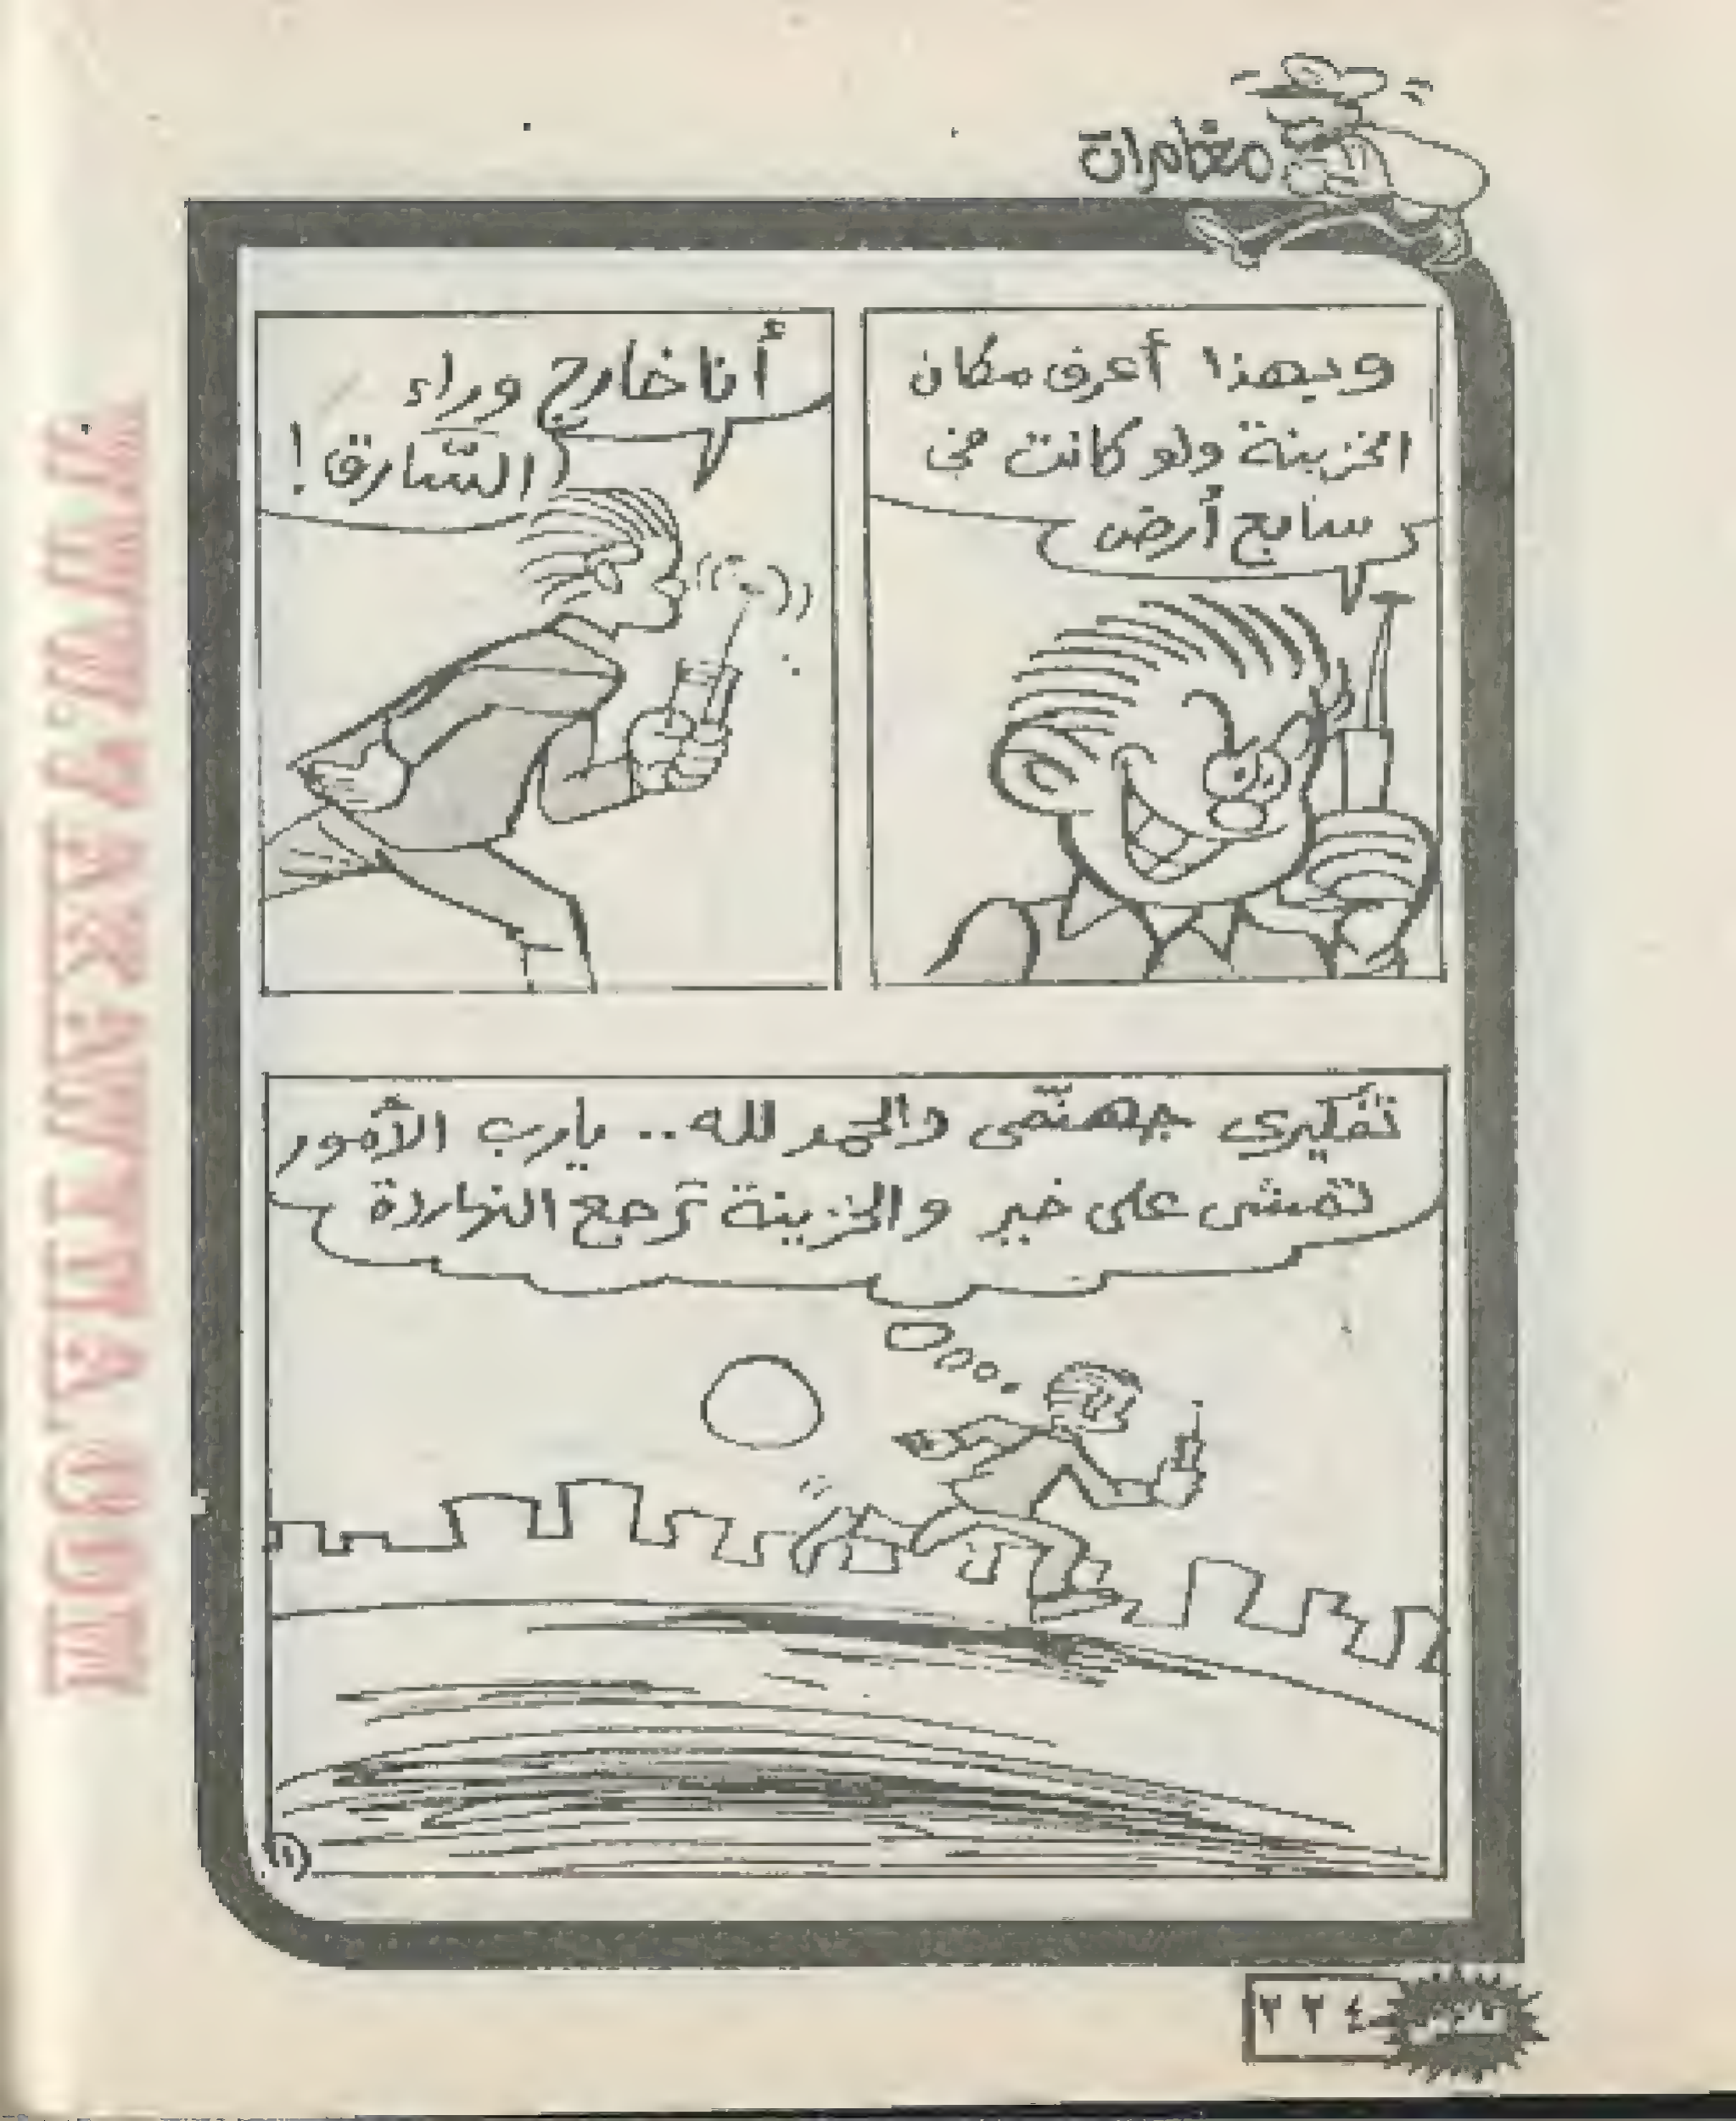 مغامرات
وبهذا أعرف مكان
الخزينة ولو كانت في
سابع أرض
أنا خارج وراء
السّارق!
تفكيرى جهنّمى والحمد لله.. يارب الأمور
تمشى على خير والخزينة ترجع النهاردة
٢٢٤